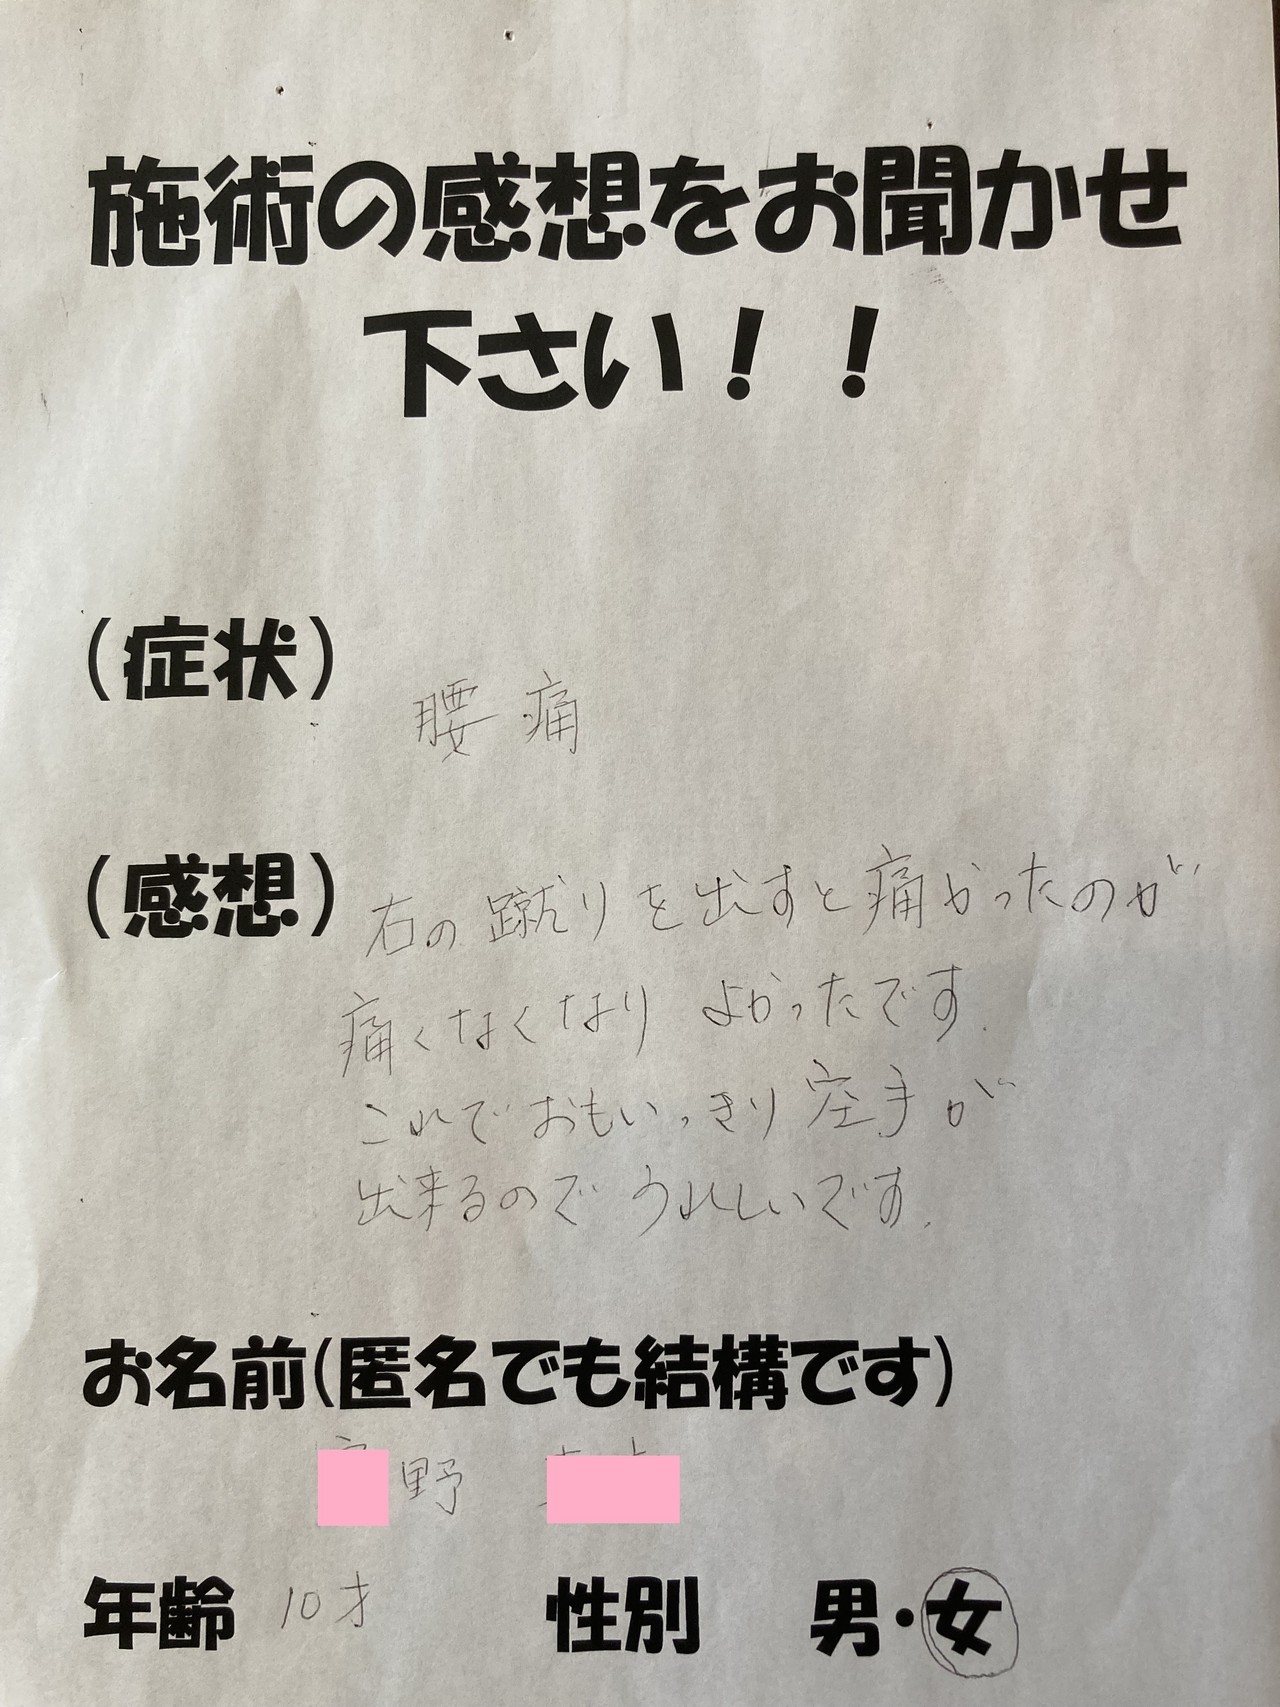 施術の感想をお聞かせ
下さい！！
（症状）
腰痛
（感想）
右の蹴りを出すと痛かったのが
痛くなくなりよかったです.
これでおもいっきり空手が
出来るのでうれしいです.
お名前(匿名でも結構です)
野
年齢 10才 性別 男・女